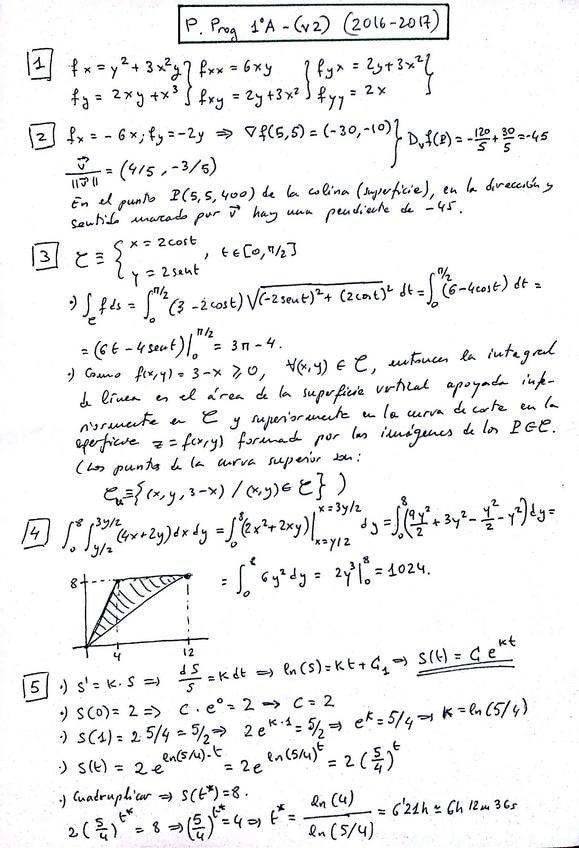 P. Prog 1ºA - (v2) (2016-2017)
1 fx = y² + 3x²y } fxx = 6xy } fyx = 2y+3x² }
fy = 2xy + x³ } fxy = 2y+3x² } fyy = 2x }
2 fx = -6x; fy = -2y ⇒ ∇f(5,5) = (-30,-10) } Dvf(P) = -120/5 + 30/5 = -45
v⃗/||v⃗|| = (4/5, -3/5)
En el punto P(5,5,400) de la colina (superficie), en la dirección y
sentido marcado por v⃗ hay una pendiente de -45.
3 C ≡ { x = 2cost
y = 2sent , t∈[0,π/2]
·) ∫_C f ds = ∫_0^{π/2} (3-2cost) √((-2sent)² + (2cost)²) dt = ∫_0^{π/2} (6-4cost) dt =
= (6t - 4sent)|_0^{π/2} = 3π - 4.
·) Como f(x,y) = 3-x ≥ 0, ∀(x,y) ∈ C, entonces la integral
de línea es el área de la superficie vertical apoyada infe-
riormente en C y superiormente en la curva de corte en la
z = f(x,y) formada por las imágenes de los P∈C.
(Los puntos de la curva superior son:
≡ {(x,y,3-x) / (x,y)∈C} )
4 ∫_0^8 ∫_{y/2}^{3y/2} (4x+2y) dx dy = ∫_0^8 (2x²+2xy)|_{x=y/2}^{x=3y/2} dy = ∫_0^8 (9y²/2 + 3y² - y²/2 - y²) dy =
= ∫_0^8 6y² dy = 2y³|_0^8 = 1024.
8
4 12
5 ·) S' = K·S ⇒ dS/S = Kdt ⇒ ln(S) = Kt + C₁ ⇒ S(t) = C e^{Kt}
·) S(0) = 2 ⇒ C·e⁰ = 2 → C = 2
·) S(1) = 2 5/4 = 5/2 ⇒ 2e^{K·1} = 5/2 ⇒ e^K = 5/4 → K = ln(5/4)
·) S(t) = 2 e^{ln(5/4)·t} = 2e^{ln(5/4)^t} = 2(5/4)^t
·) Cuadruplicar ⇒ S(t*) = 8.
2(5/4)^{t*} = 8 ⇒ (5/4)^{t*} = 4 ⇒ t* = ln(4)/ln(5/4) = 6'21h ≃ 6h 12m 36s